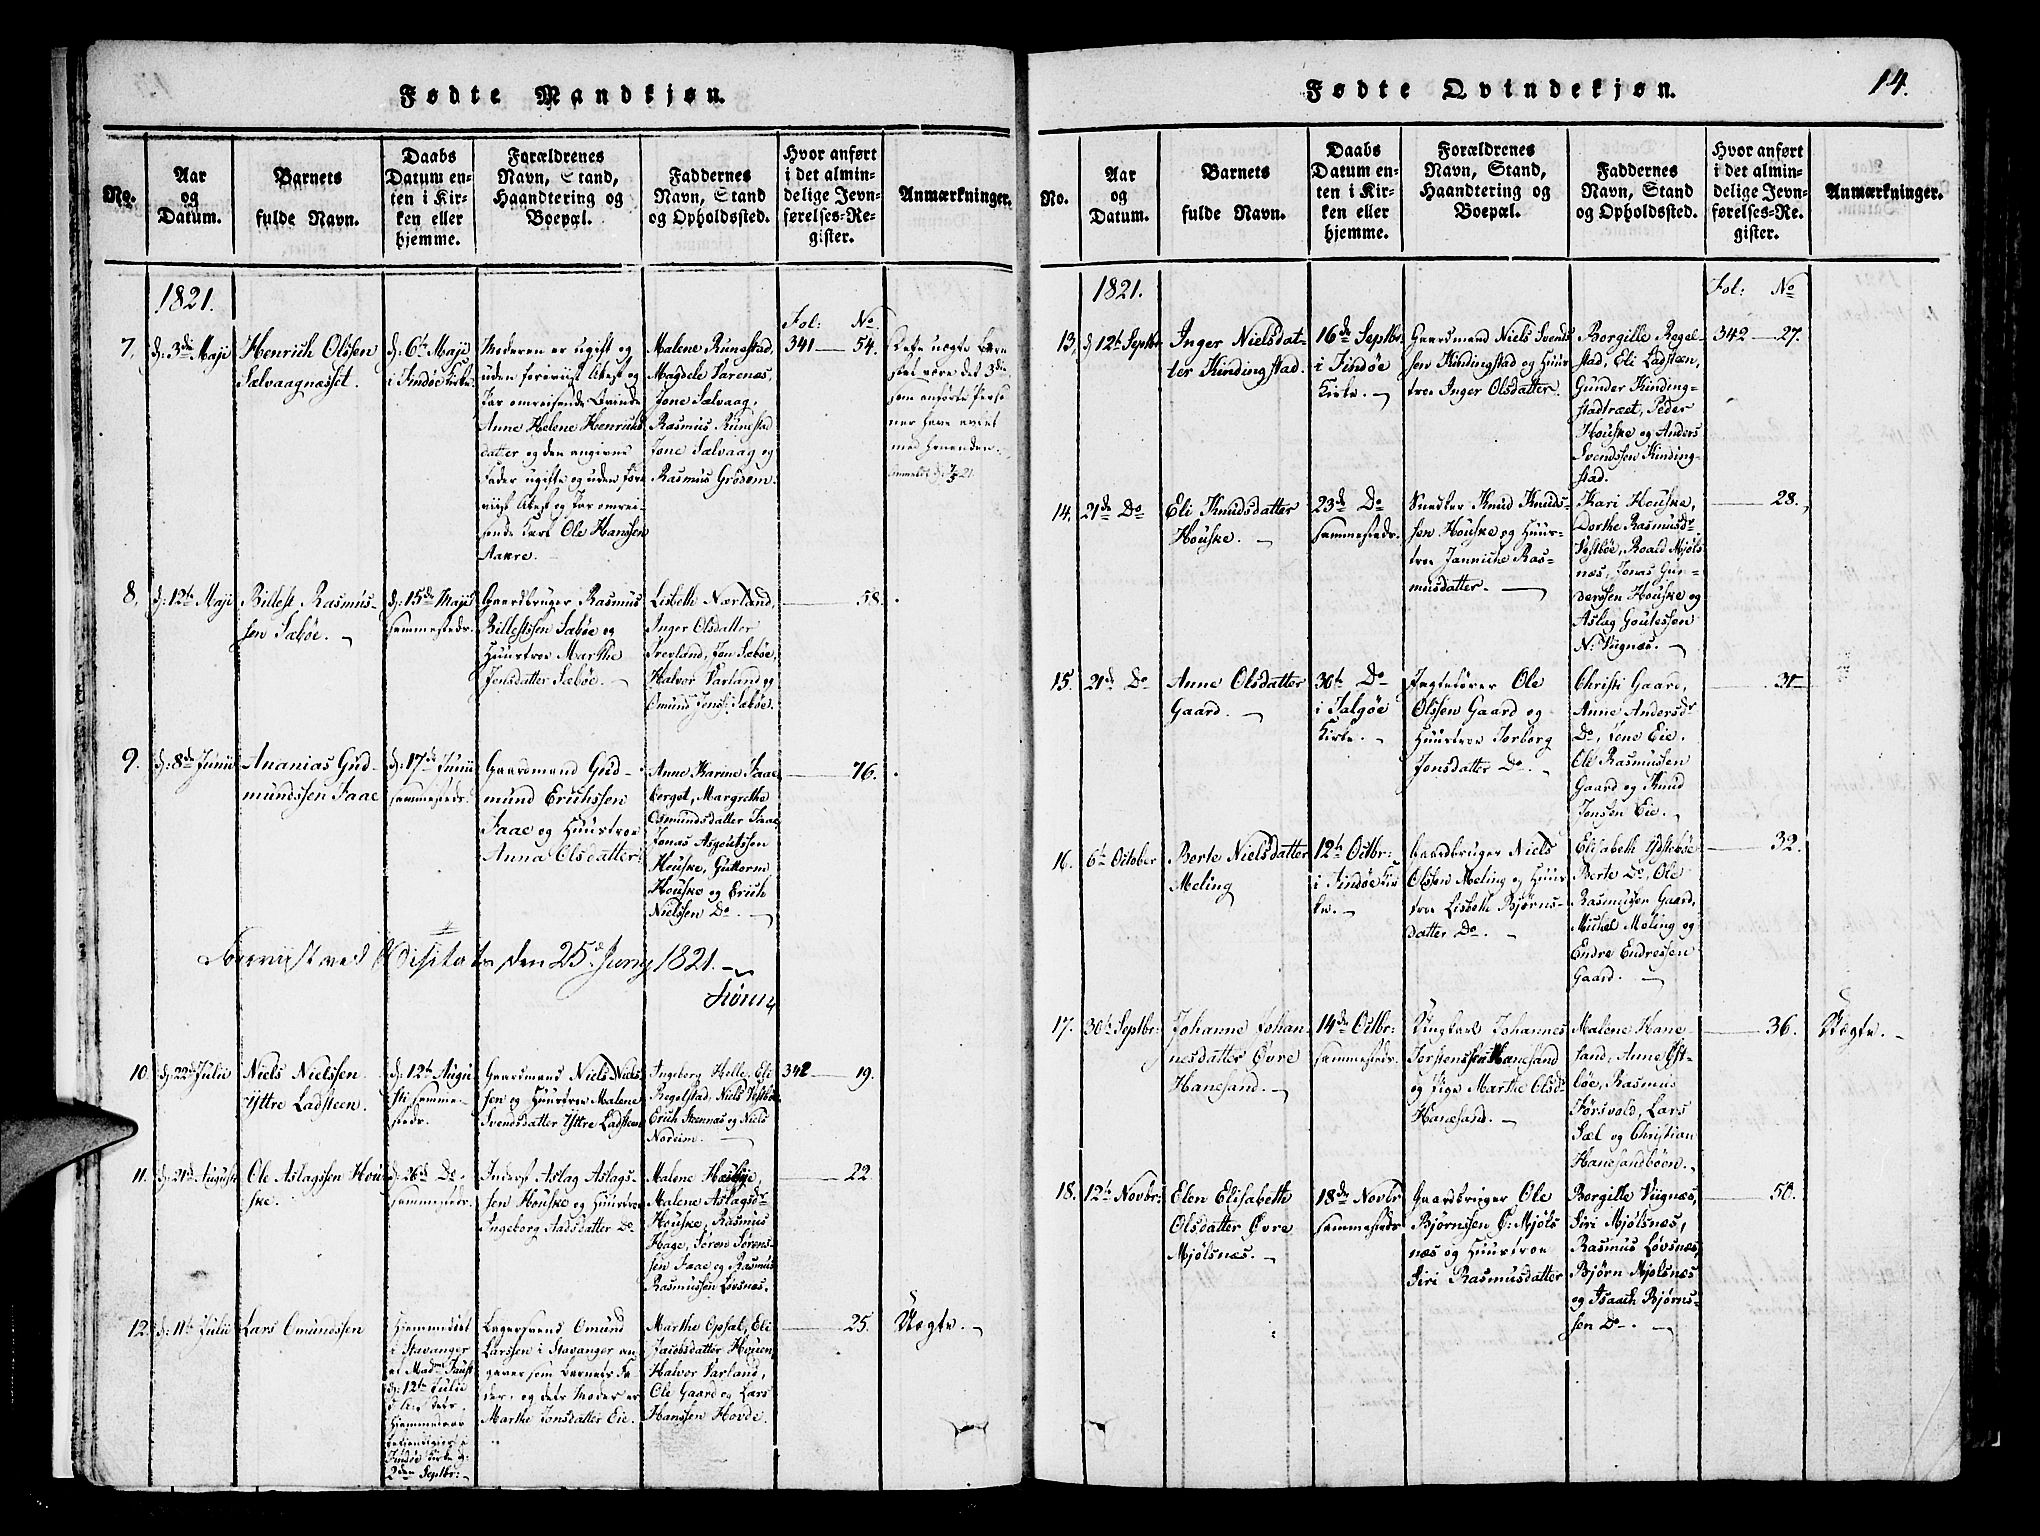 Fødte Mandkjøn.
No.
Aar
og
Datum.
Barnets
fulde Navn.
Daabs
Datum en-
ten i Kir-
ken eller
hjemme.
Forældrenes
Navn, Stand,
Haandtering og
Boepæl.
Faddernes
Navn, Stand
og Opholdssted.
Hvor anført
i det almin-
delige Jevn-
førelses-Re-
gister.
Anmærkninger.
1821.
Fol: No.
7.
d: 3de Maji
Henrich Olssen
Sælvaagnæsset.
d: 6te Maji
i Findøe Kirke.
Moderen er ugift og
uden foreviist Attest og
Anne Helene Henrichs
datter og den angivne
Fader ugifte og uden fore
viist Attest og
Ole Hanssen
Aakre.
Malene Runestad,
Magdele Varenæs,
Jone Sælvaag,
Rasmus Runestad
Jone Sælvaag og
Rasmus Grødem.
341 54.
8.
d: 12te Maji
Billest Rasmus-
sen Sæbøe.
d: 15de Maji
sammestedr.
Gaardbruger Rasmus
Billestssen Sæbøe og
Huustroe Marthe
Jonsdatter Sæbøe.
Lisbeth Nærland,
Inger Olsdatter
Jon Sæbøe,
Halvor Varland og
Omund Jonss: Sæbøe.
58.
9.
d: 8de Junii
Ananias Gud-
mundssen Faae
d: 17de Junii
sammestedr.
Gaardmand Gud-
mund Erichssen
Faae og Huustroe
Anna Olsdatter
Anne Karine Faae
berget, Margrethe
Osmundsdatter Faae,
Jonas Asgoutssen
Houske, Guttorm
Houske og Erich
Nielssen Do.
76.
Foreviist ved Visitats den 25de Juny 1821.
10.
d: 22de Julii
Niels Nielssen
Yttre Ladsteen.
d: 12te Augu
sti samme-
stedr.
Gaardmand Niels Niels
sen og Huustroe Malene
Svendsdatter Yttre Ladsteen
Ingeborg Helle, Eli
Regelstad, Niels Vestbøe
Erich Steennæs og Niels
Nordeim.
342 19.
11.
d: 21de August
Ole Aslagssen Hou
ske.
d: 26de Do
sammestedr.
Inderst Aslag Aslags-
sen Houske og Huustroe
Ingeborg Aadsdatter Do
Malene Hæskje,
Malene Aslagsdr
Houske, Rasmus
Hage, Søren Sørens-
sen Faae og Rasmus
Rasmussen Løvsnæs.
22
12.
d: 11te Julii
Lars Omundssen
Hjemmedøbt
i Stavanger
af Madme Faust
d: 12te Julii
Findøe Kirke d:
2den Septbr:
Omund
Larssen i Stavanger an
gaver som Barnets Fa-
der, og dets Moder er
Marthe Jonsdatter Eie.
Marthe Opsal, Eli
Jacobsdatter Houen,
Halvor Varland,
Ole Gaard og Lars
Hanssen Hovde.
25.
Uægte.
Fødte Qvindekjøn.
14.
No.
Aar
og
Datum.
Barnets
fulde Navn.
Daabs
Datum en-
ten i Kir-
ken eller
hjemme.
Forældrenes
Navn, Stand,
Haandtering og
Boepæl.
Faddernes
Navn, Stand
og Opholdssted.
Hvor anført
i det almin-
delige Jevn-
førelses-Re-
gister.
Anmærkninger.
1821.
Fol: No
13.
d: 12te Septbr
Inger Nielsdat-
ter Kindingstad.
16de Septbr:
i Findøe
Kirke.
Gaardmand Niels Svends
sen Kindingstad og Huus
troe Inger Olsdatter.
Borgille Regel-
stad, Eli Ladsteen,
Gunder Kinding-
stadtræet, Peder
Houske og Anders
Svendssen Kinding-
stad.
342 27.
14.
21de Do
Eli Knudsdatter
Houske.
23de Do
sammestedr.
Snedker Knud Knuds-
sen Houske og Huus-
troe Janniche Ras-
musdatter.
Kari Houske,
Dorthe Rasmusdr
Vestbøe, Roald Mjøls
næs, Jonas Gun-
derssen Houske og
Aslag Goutessen
N: Viignæs.
28.
15.
21de Do
Anne Olsdatter
Gaard.
30te Do
i Talgøe
Kirke.
Jegtefører Ole
Olssen Gaard og
Huustroe Torborg
Jonsdatter Do.
Christi Gaard,
Anne Andersdr
Do, Jone Eie.
Ole Rasmussen
Gaard og Knud
Jonsen Eie.
31
16.
6te October
Berte Nielsdatter
Meling
12te Octbr:
i Findøe Kir
ke.
Gaardbruger Niels
Olssen Meling og Huus
troe Lisbeth Bjørns-
datter Do.
Elisabeth Ydstebøe
Berte Do, Ole
Rasmussen Gaard,
Michel Meling og
Endre Endressen
Gaard.
32.
17.
30te Septbr:
Johanne Johan-
nesdatter Øvre
Hanesand.
14de Octbr:
sammestedr.
Ungkarl Johannes
Torstenssen Hanesand
og Pige Marthe Olsdr
Hanesand.
Malene Hane
sand, Anne Øst-
bøe, Rasmus
Førsvold, Lars
Sæl og Christian
Hanesandbøen.
36.
Uægte.
18.
12te Novbr:
Elen Elisabeth
Olsdatter Øvre
Mjølsnæs.
18de Novbr
sammestedr
Gaardbruger Ole
Bjørnssen Ø: Mjøls
næs og Huustroe
Siri Rasmusdatter
Borgille Viignæs,
Siri Mjølsnæs,
Rasmus Løvsnæs,
Bjørn Mjølsnæs
og Isaach Bjørns-
sen Do.
50.